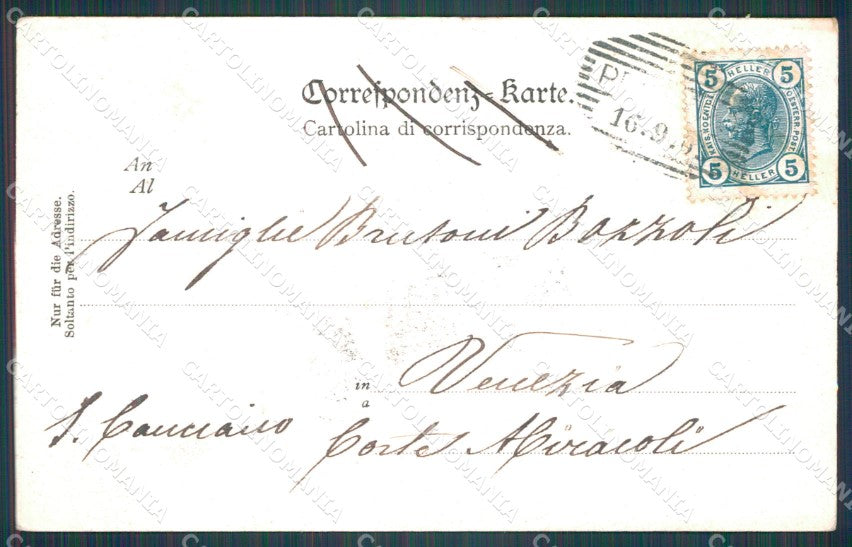 Correspondenz-Karte.
Cartolina di corrispondenza.
16.9.0
5 HELLER 5
KAIS. KOENIGL. OESTERR. POST.
5 HELLER 5
An
Al
Nur für die Adresse.
Soltanto per l'indirizzo.
Famiglie Brusoni Bozzoli
in
a
Venezia
S. Canciano
Corte Miracoli
CARTOLINOMANIA